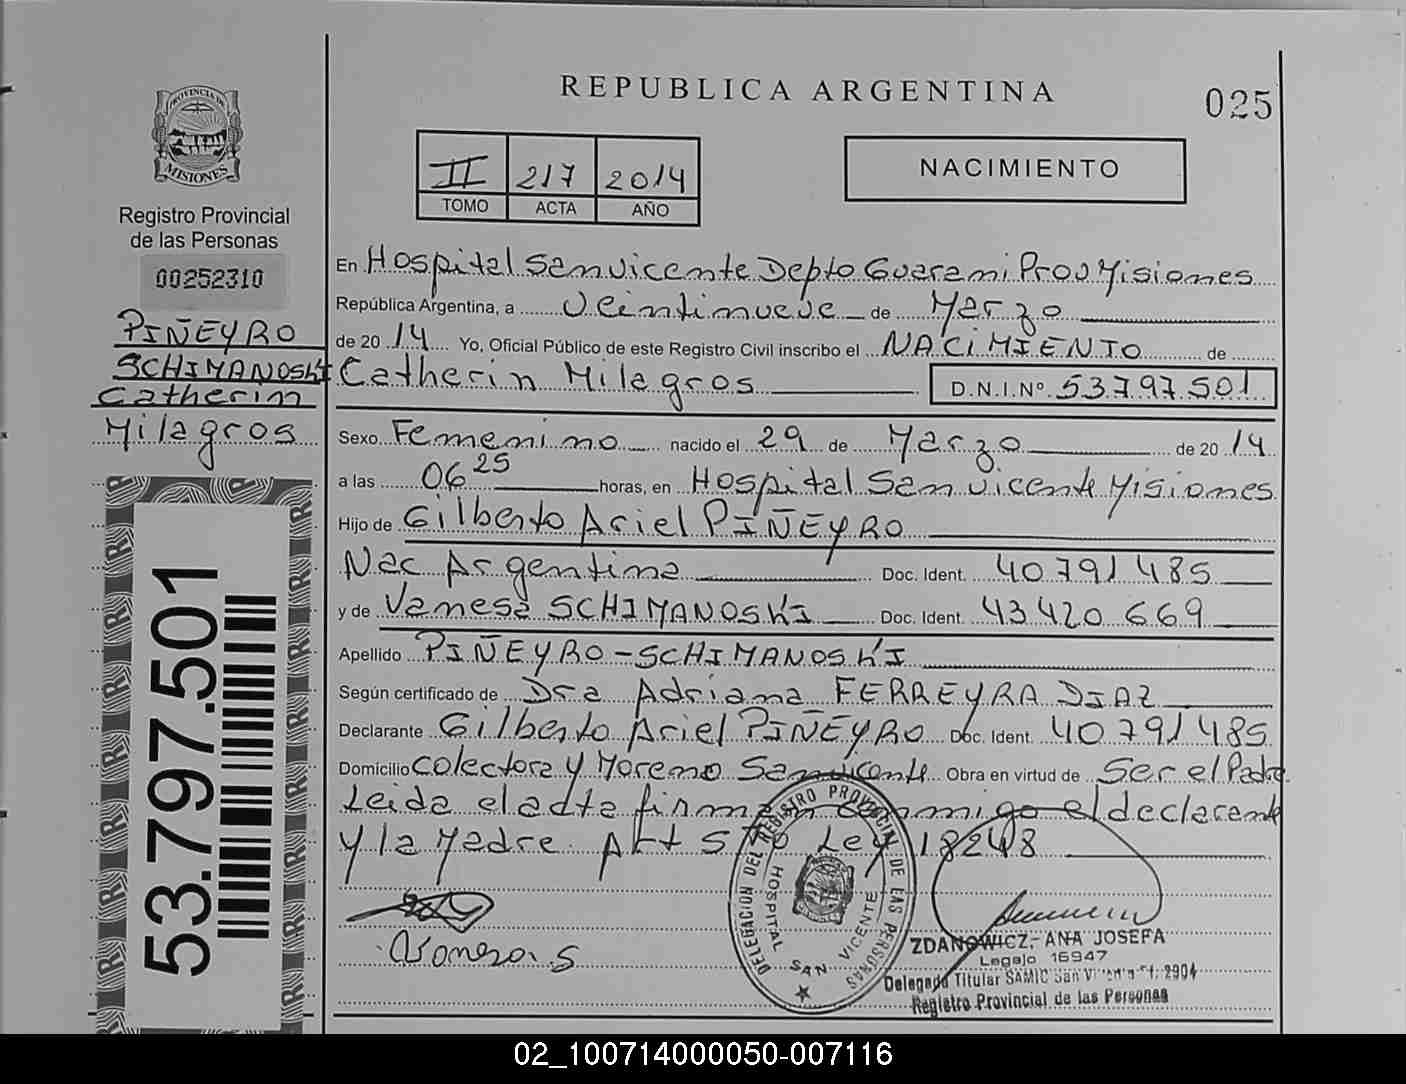 REPUBLICA ARGENTINA
025
PROVINCIA DE
MISIONES
Registro Provincial
de las Personas
00252310
PIÑEYRO
SCHIMANOSKI
Catherin
Milagros
53.797.501
II 217 2014
TOMO ACTA AÑO
NACIMIENTO
En Hospital San Vicente Depto Guarani Prov Misiones
República Argentina, a Veintinueve de Marzo
de 20 14 Yo, Oficial Público de este Registro Civil inscribo el NACIMIENTO de
Catherin Milagros D.N.I.Nº 53.797.501
Sexo Femenino nacido el 29 de Marzo de 20 14
a las 06 25 horas, en Hospital San Vicente Misiones
Hijo de Gilberto Ariel PIÑEYRO
Nac Argentina Doc. Ident. 40 791 485
y de Vanesa SCHIMANOSKI Doc. Ident. 43 420 669
Apellido PIÑEYRO-SCHIMANOSKI
Según certificado de Dra Adriana FERREYRA DIAZ
Declarante Gilberto Ariel PIÑEYRO Doc. Ident. 40 791 485
Domicilio Colectora y Moreno San Vicente Obra en virtud de Ser el Padre
Leida el acta firma conmigo el declarante
y la Madre Art 5to Ley 18248
DELEGACION DEL REGISTRO PROVINCIAL DE LAS PERSONAS
HOSPITAL SAN VICENTE
ZDANOWICZ, ANA JOSEFA
Legajo 16947
Delegada Titular SAMIC San 2904
Registro Provincial de las Personas
02_100714000050-007116